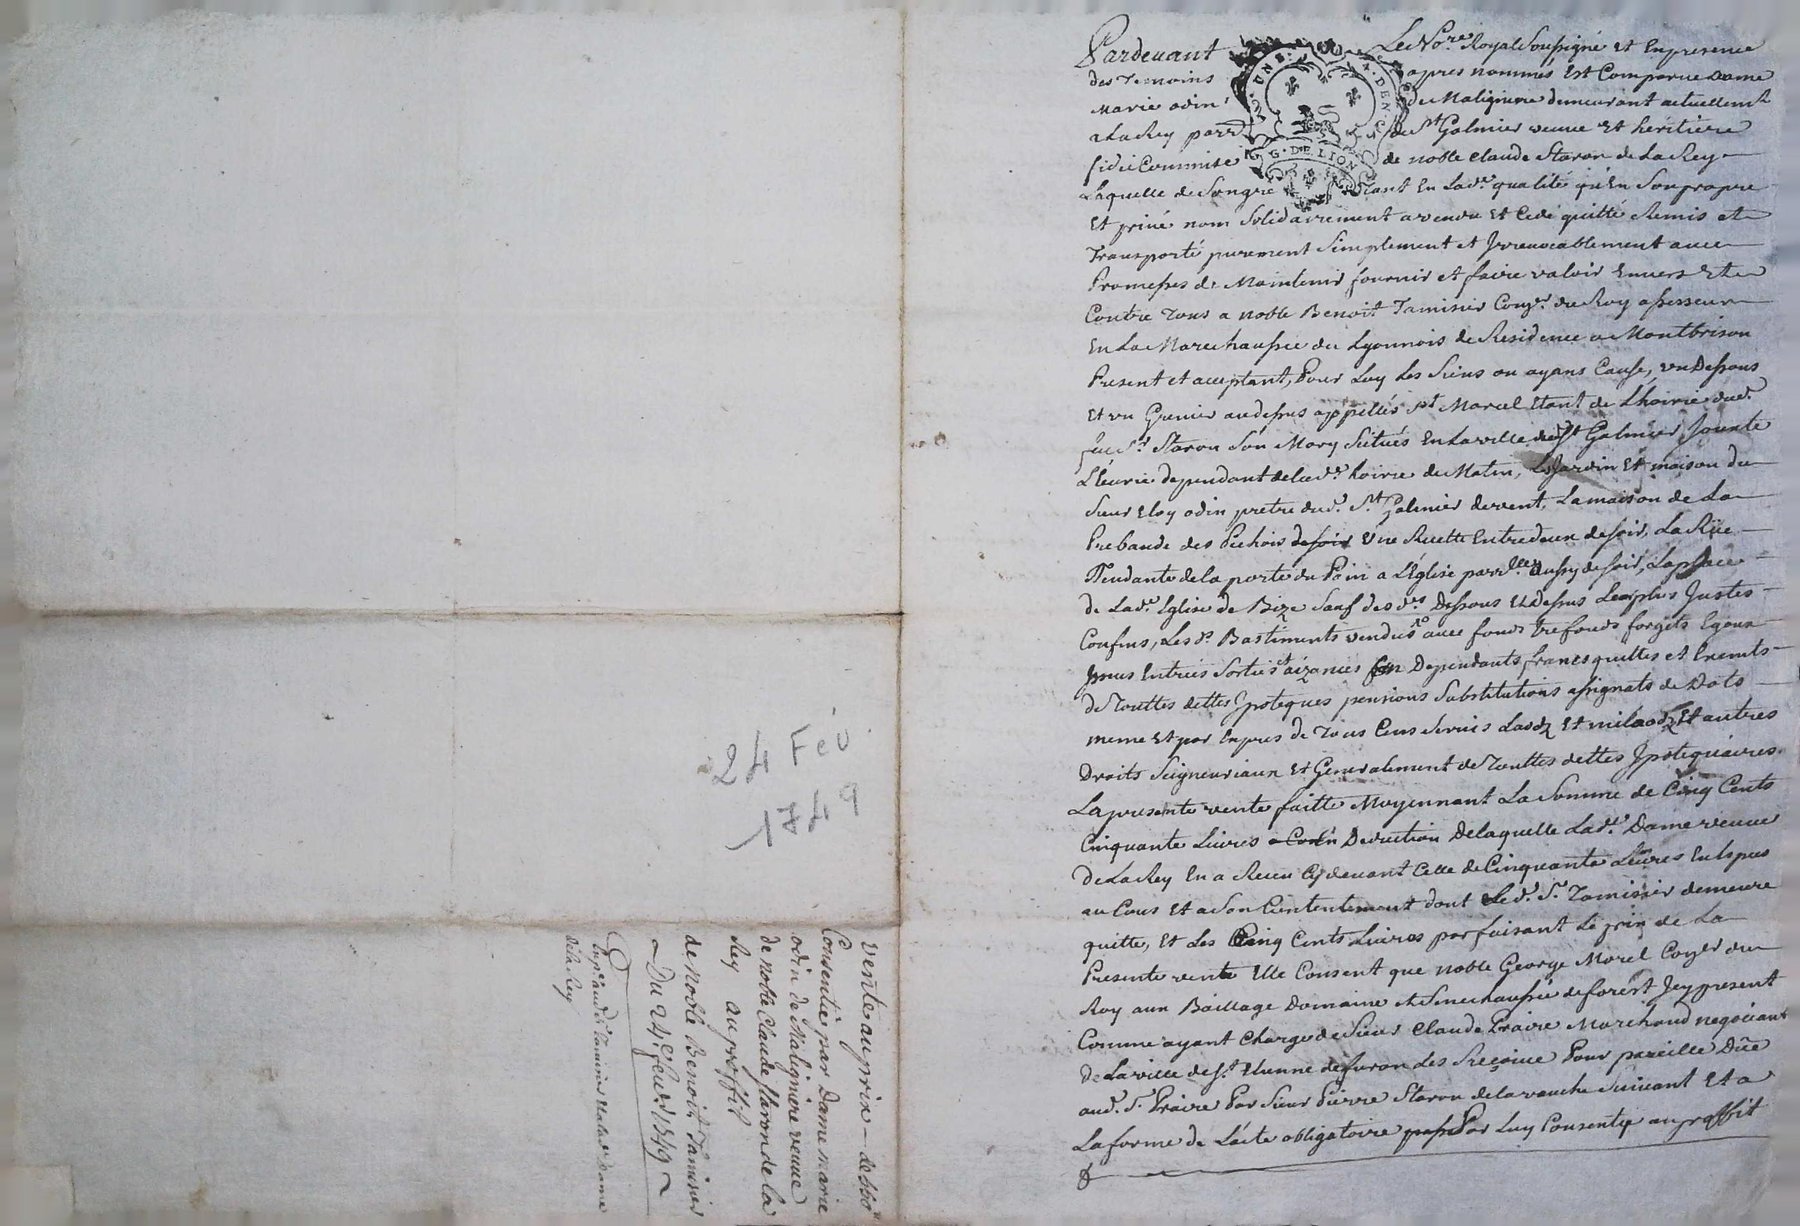 Pardevant Le No.re Royal Soussigné et En presence
des Temoins apres nommés Est Comparue Dame
Marie odin de Malignere demeurant actuellem.t
a La Rey parr. de S.t Galmier veuve et heritiere
fidei Commise de noble Claude Staron de La Rey
Laquelle de Son gré tant En Lad.e qualité qu'En Son propre
Et privé nom Solidairement a vendu et Cedé quitté Remis et
Transporté purement Simplement et Irrevocablement avec
Promesses de Maintenir fournir et faire valoir Envers Et
Contre Tous a noble Benoit Tamisier Con.er du Roy assesseur
En La Marechaussée du Lyonnois de Residence a Montbrison
Present et acceptant, Pour Luy Les Siens ou ayans Cause, un Dessous
Et un Grenier au dessus appellés S.t Marcel Etant de L'hoirie dud.
feu S.r Staron Son Mary Scitués En La ville de S.t Galmier Jouxte
L'écurie dependant de lad.e hoirie de Matin, Le Jardin Et maison du
Sieur Eloy odin pretre dud. S.t Galmier de vent, La maison de La
Prebande des Pichois de soir Une Ruette Entredeux de soir, La Rüe
Tendante de la porte du Pain a L'Église parr.lle aussy de soir, La place
de Lad.e Eglise de Bize Sauf des d.s Dessous Et dessus Les plus Justes
Confins, Les d.s Bastiments vendus avec fonds trefonds forgets Egoux
Jssues Entrées Sorties et aizances En Dependants, francs quittes et Exempts
de Touttes dettes Ipoteques pensions Substitutions assignats de Dots
meme Et par Exprès de Tous Cens Servis Laods Et milaods Et autres
Droits Seigneuriaux Et Generalement de Touttes dettes Ipotequaires
La presente vente faitte Moyennant La Somme de Cinq Cents
Cinquante Livres Deduction De laquelle Lad.e Dame veuve
de La Rey En a Receu Cy devant Celle de Cinquante Livres En Especes
au Cours Et a Son Contentement dont Led. S.r Tamisier demeure
quitte, Et Les Cinq Cents Livres parfaisant Le prix de La
Presente vente Elle Consent que noble George Morel Con.er du
Roy aux Bailliage Domaine et Senechaussée de forest Jcy present
Comme ayant Charge de Sieur Claude Praire Marchand negociant
de La ville de S.t Etienne de furan Les Reçoive Pour pareille Düe
aud. S.r Praire Par Sieur Pierre Staron de la vauche Suivant Et a
La forme de L'acte obligatoire passé Par Luy Consenty au proffit
24 Fév.
1749
vente au prix de 550.ll
Consentie par Dame marie
odin de Malignere veuve
de noble Claude Staron de la
Rey au proffit
de noble Benoit Tamisier
Du 24.e feu.er 1749
Tamisier Et lad. Dame
de la Rey